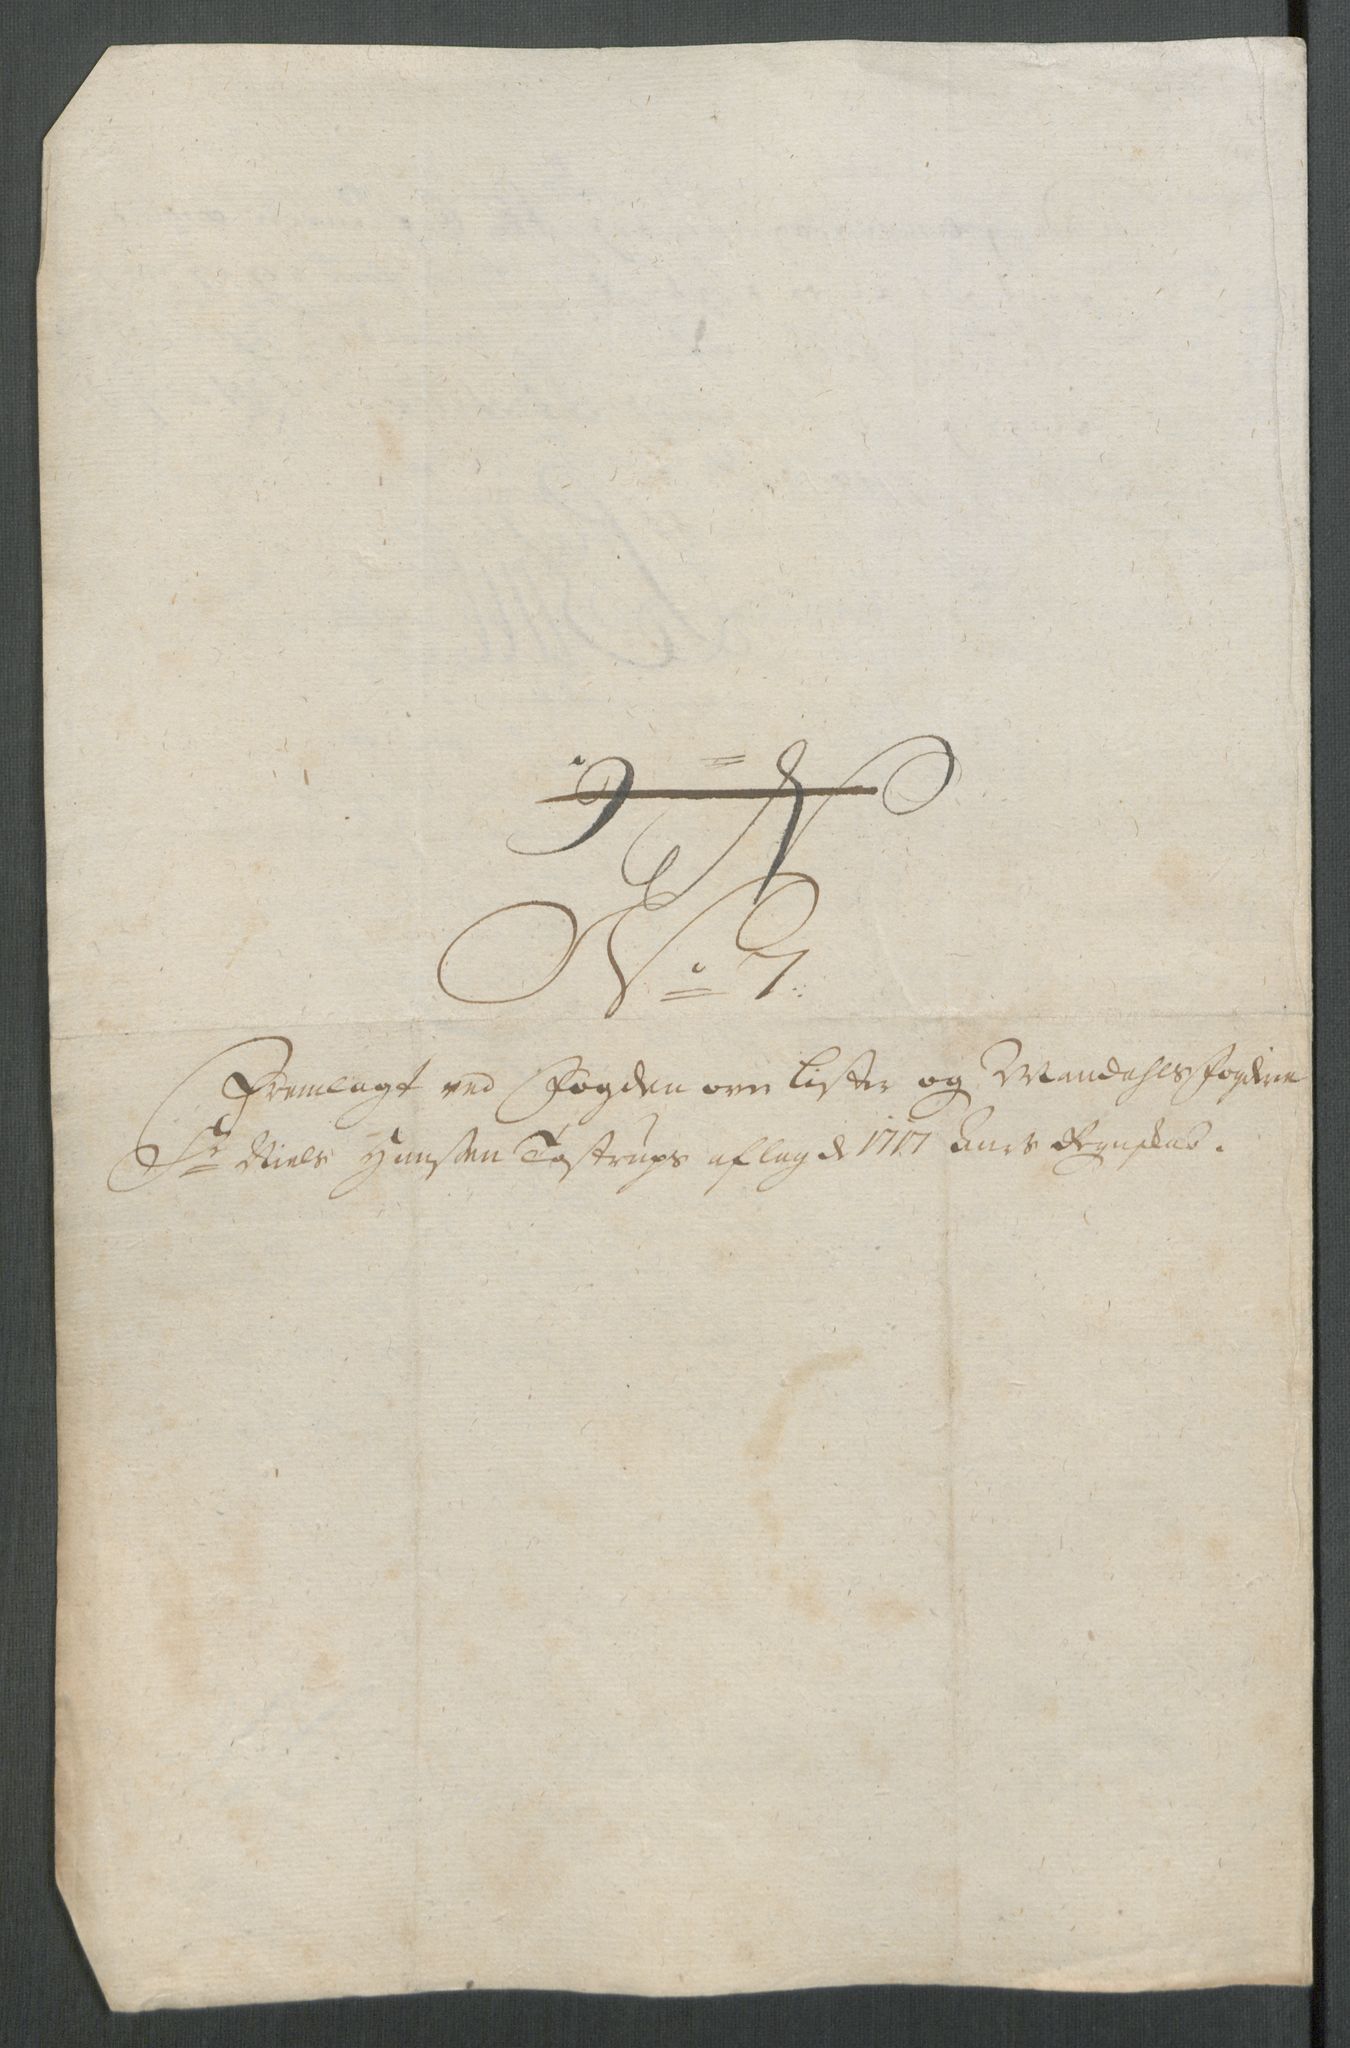 No 7:
Fremlagt ved Fogden over Lister og Mandahls fogderie
Sr Niels Hanssen Tostrups aflagde 1717 Aars Regnskab.